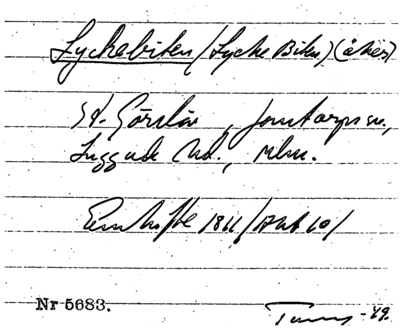 Lyckebiten (Lycke Biten) (åker)
St. Görslöv, Jonstorps sn.,
Luggude hd., Mlm.
Enskifte 1811 (Akt 10)
Nr 5683.
-49.